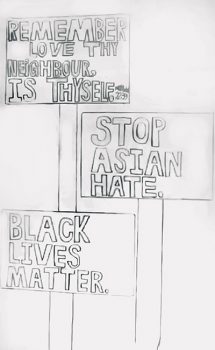 REMEMBER
LOVE THY
NEIGHBOUR,
IS THYSELF.
STOP
ASIAN
HATE.
BLACK
LIVES
MATTER.